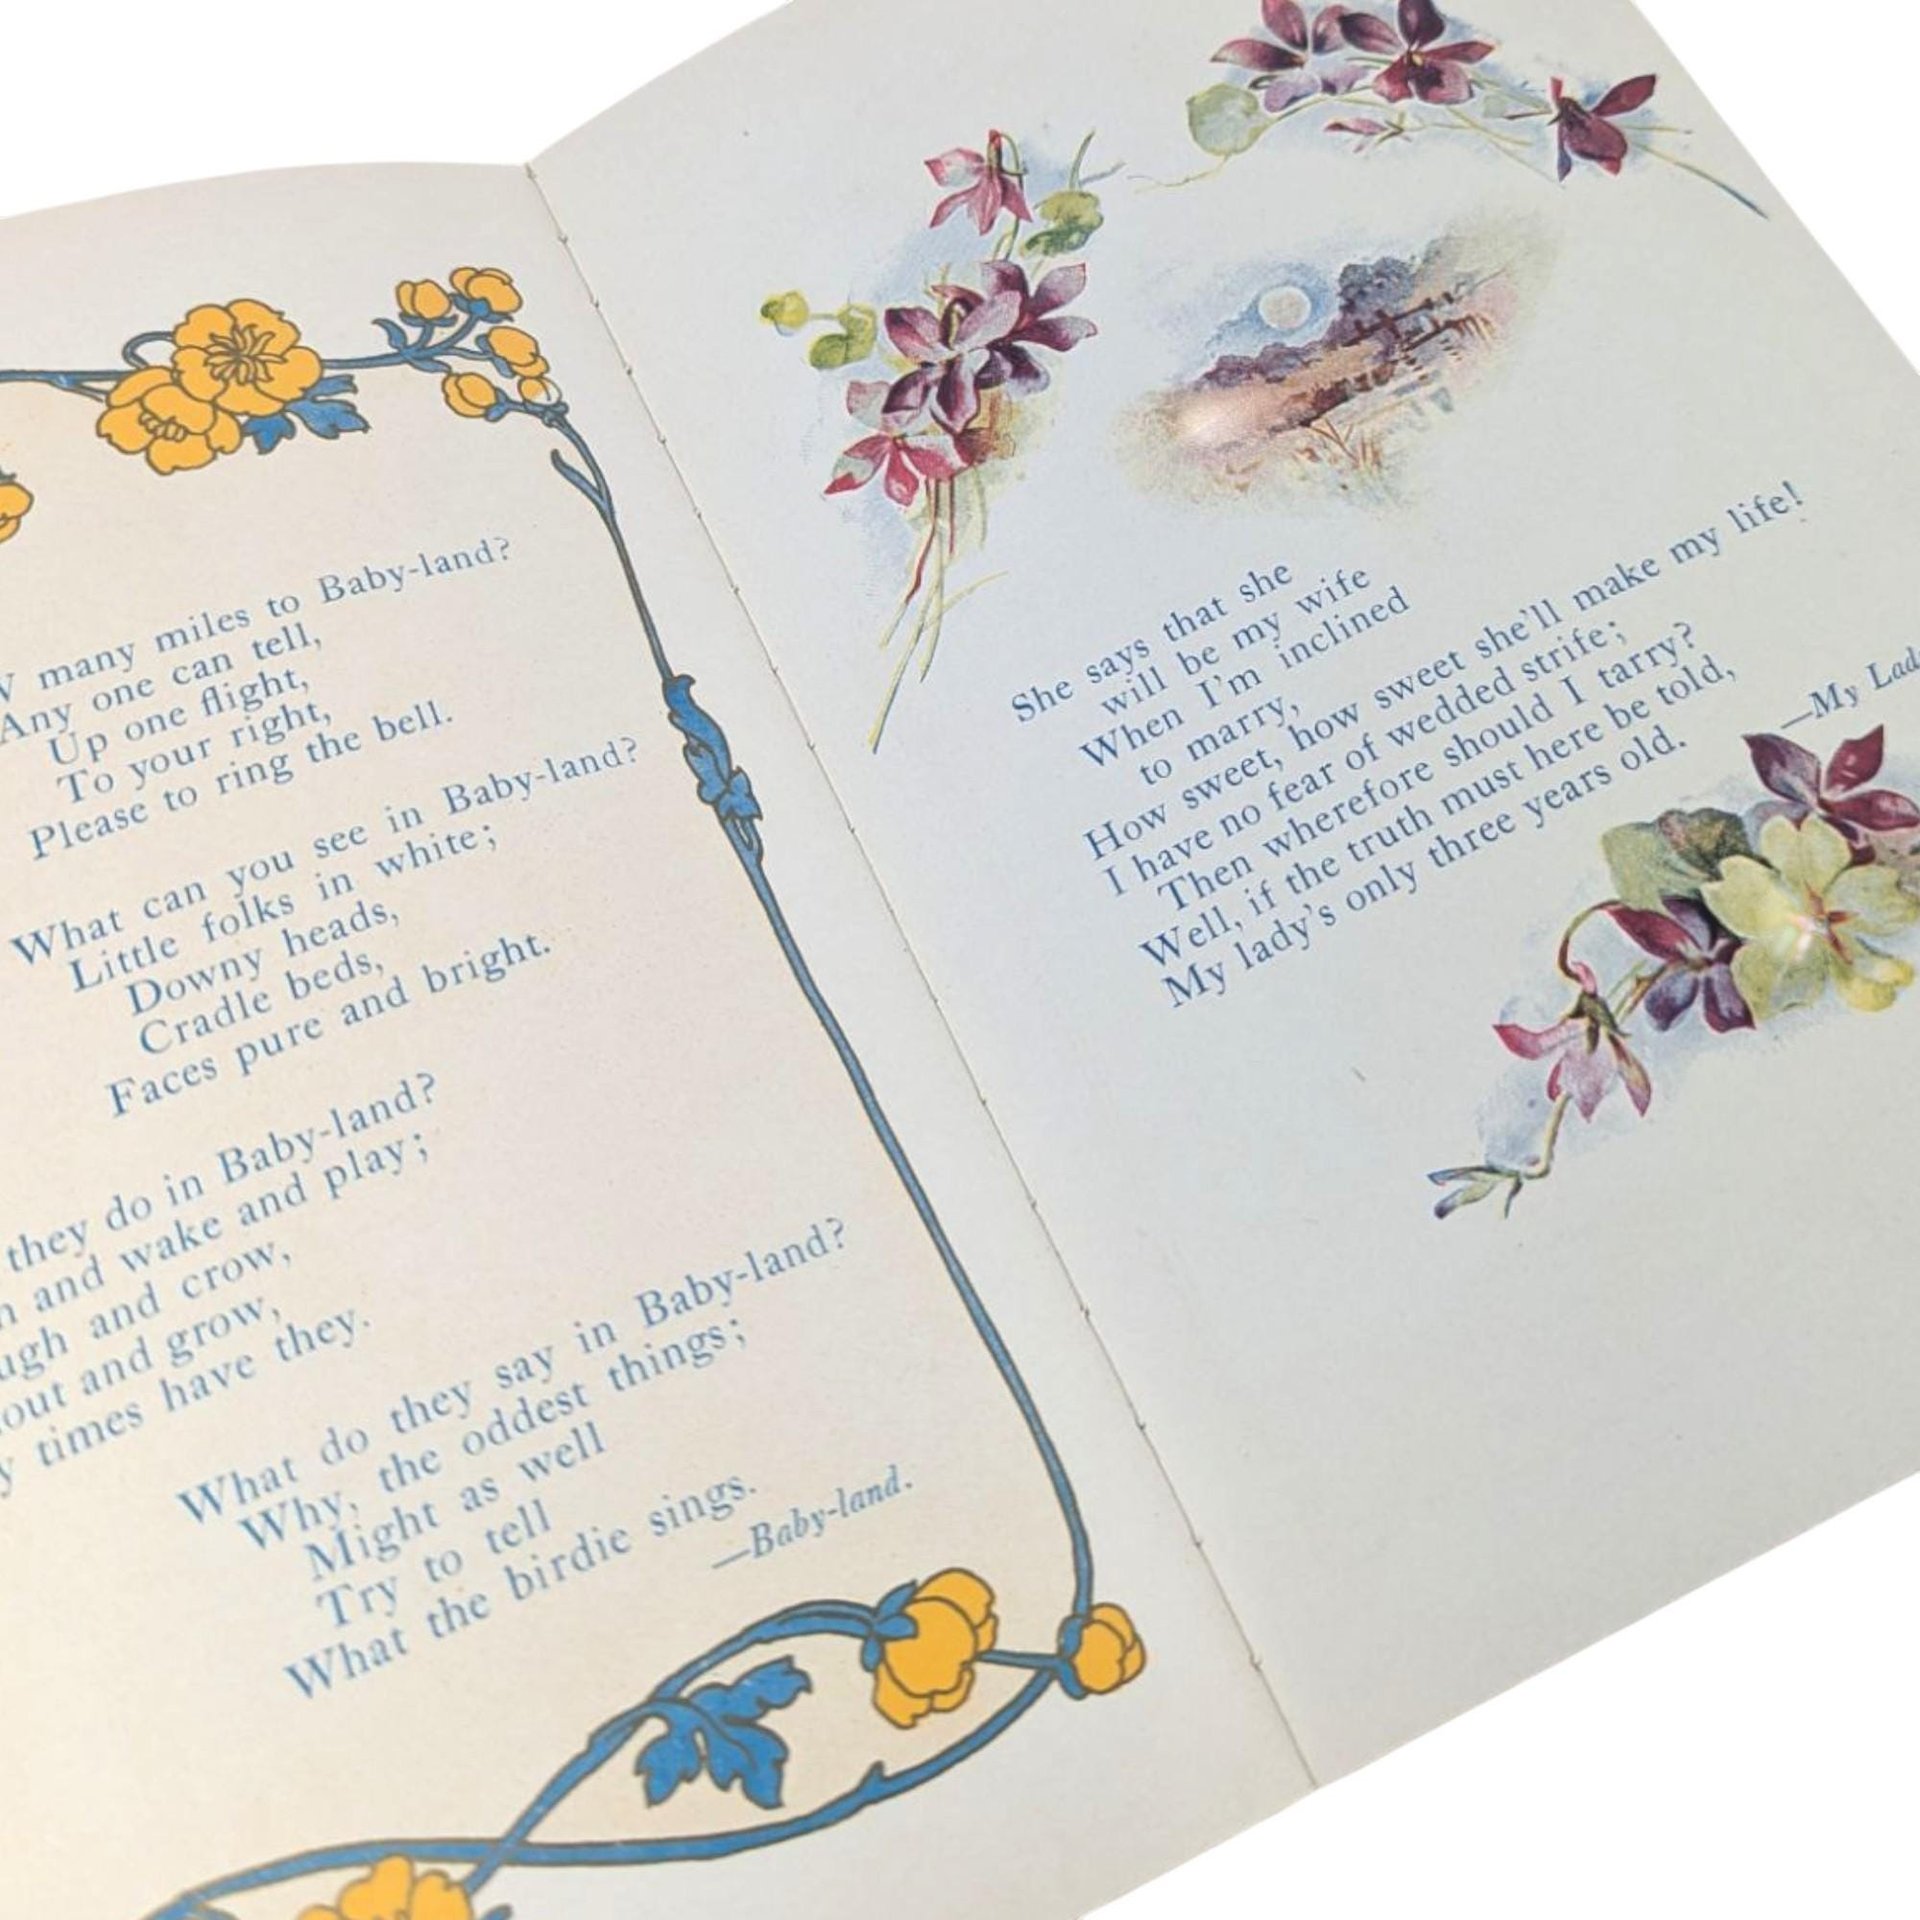 many miles to Baby-land?
Any one can tell,
Up one flight,
To your right,
Please to ring the bell.
What can you see in Baby-land?
Little folks in white;
Downy heads,
Cradle beds,
Faces pure and bright.
they do in Baby-land?
and wake and play;
and crow,
and grow,
times have they.
What do they say in Baby-land?
Why, the oddest things;
Might as well
Try to tell
What the birdie sings.
—Baby-land.
She says that she
will be my wife
When I'm inclined
to marry,
How sweet, how sweet she'll make my life!
I have no fear of wedded strife;
Then wherefore should I tarry?
Well, if the truth must here be told,
My lady's only three years old.
—My Lady